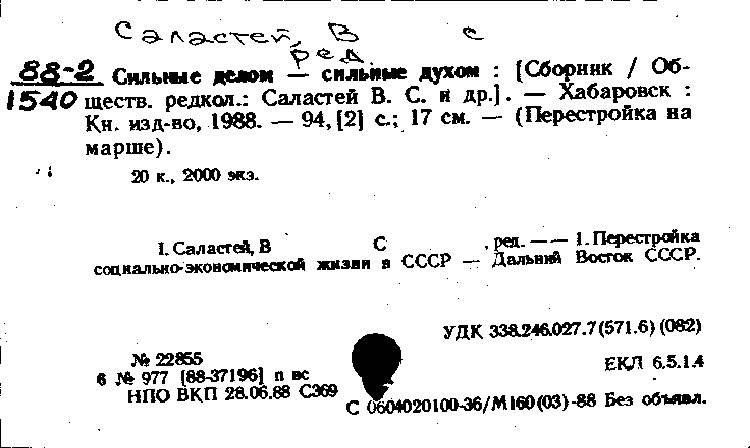 Саластей, В С
ред.
88-2 Сильные делом — сильные духом : [Сборник / Об-
1540 ществ. редкол.: Саластей В. С. и др.]. — Хабаровск :
Кн. изд-во, 1988. — 94, [2] с.; 17 см. — (Перестройка на
марше).
20 к., 2000 экз.
1. Саластей, В С , ред. — — 1. Перестройка
социально-экономической жизни в СССР — Дальний Восток СССР.
УДК 338.246.027.7(571.6)(082)
№ 22855
ЕКЛ 6.5.1.4
6 № 977 [88-37196] п вс
НПО ВКП 28.06.88 С369
С 0604020100-36/М160(03)-88 Без объявл.